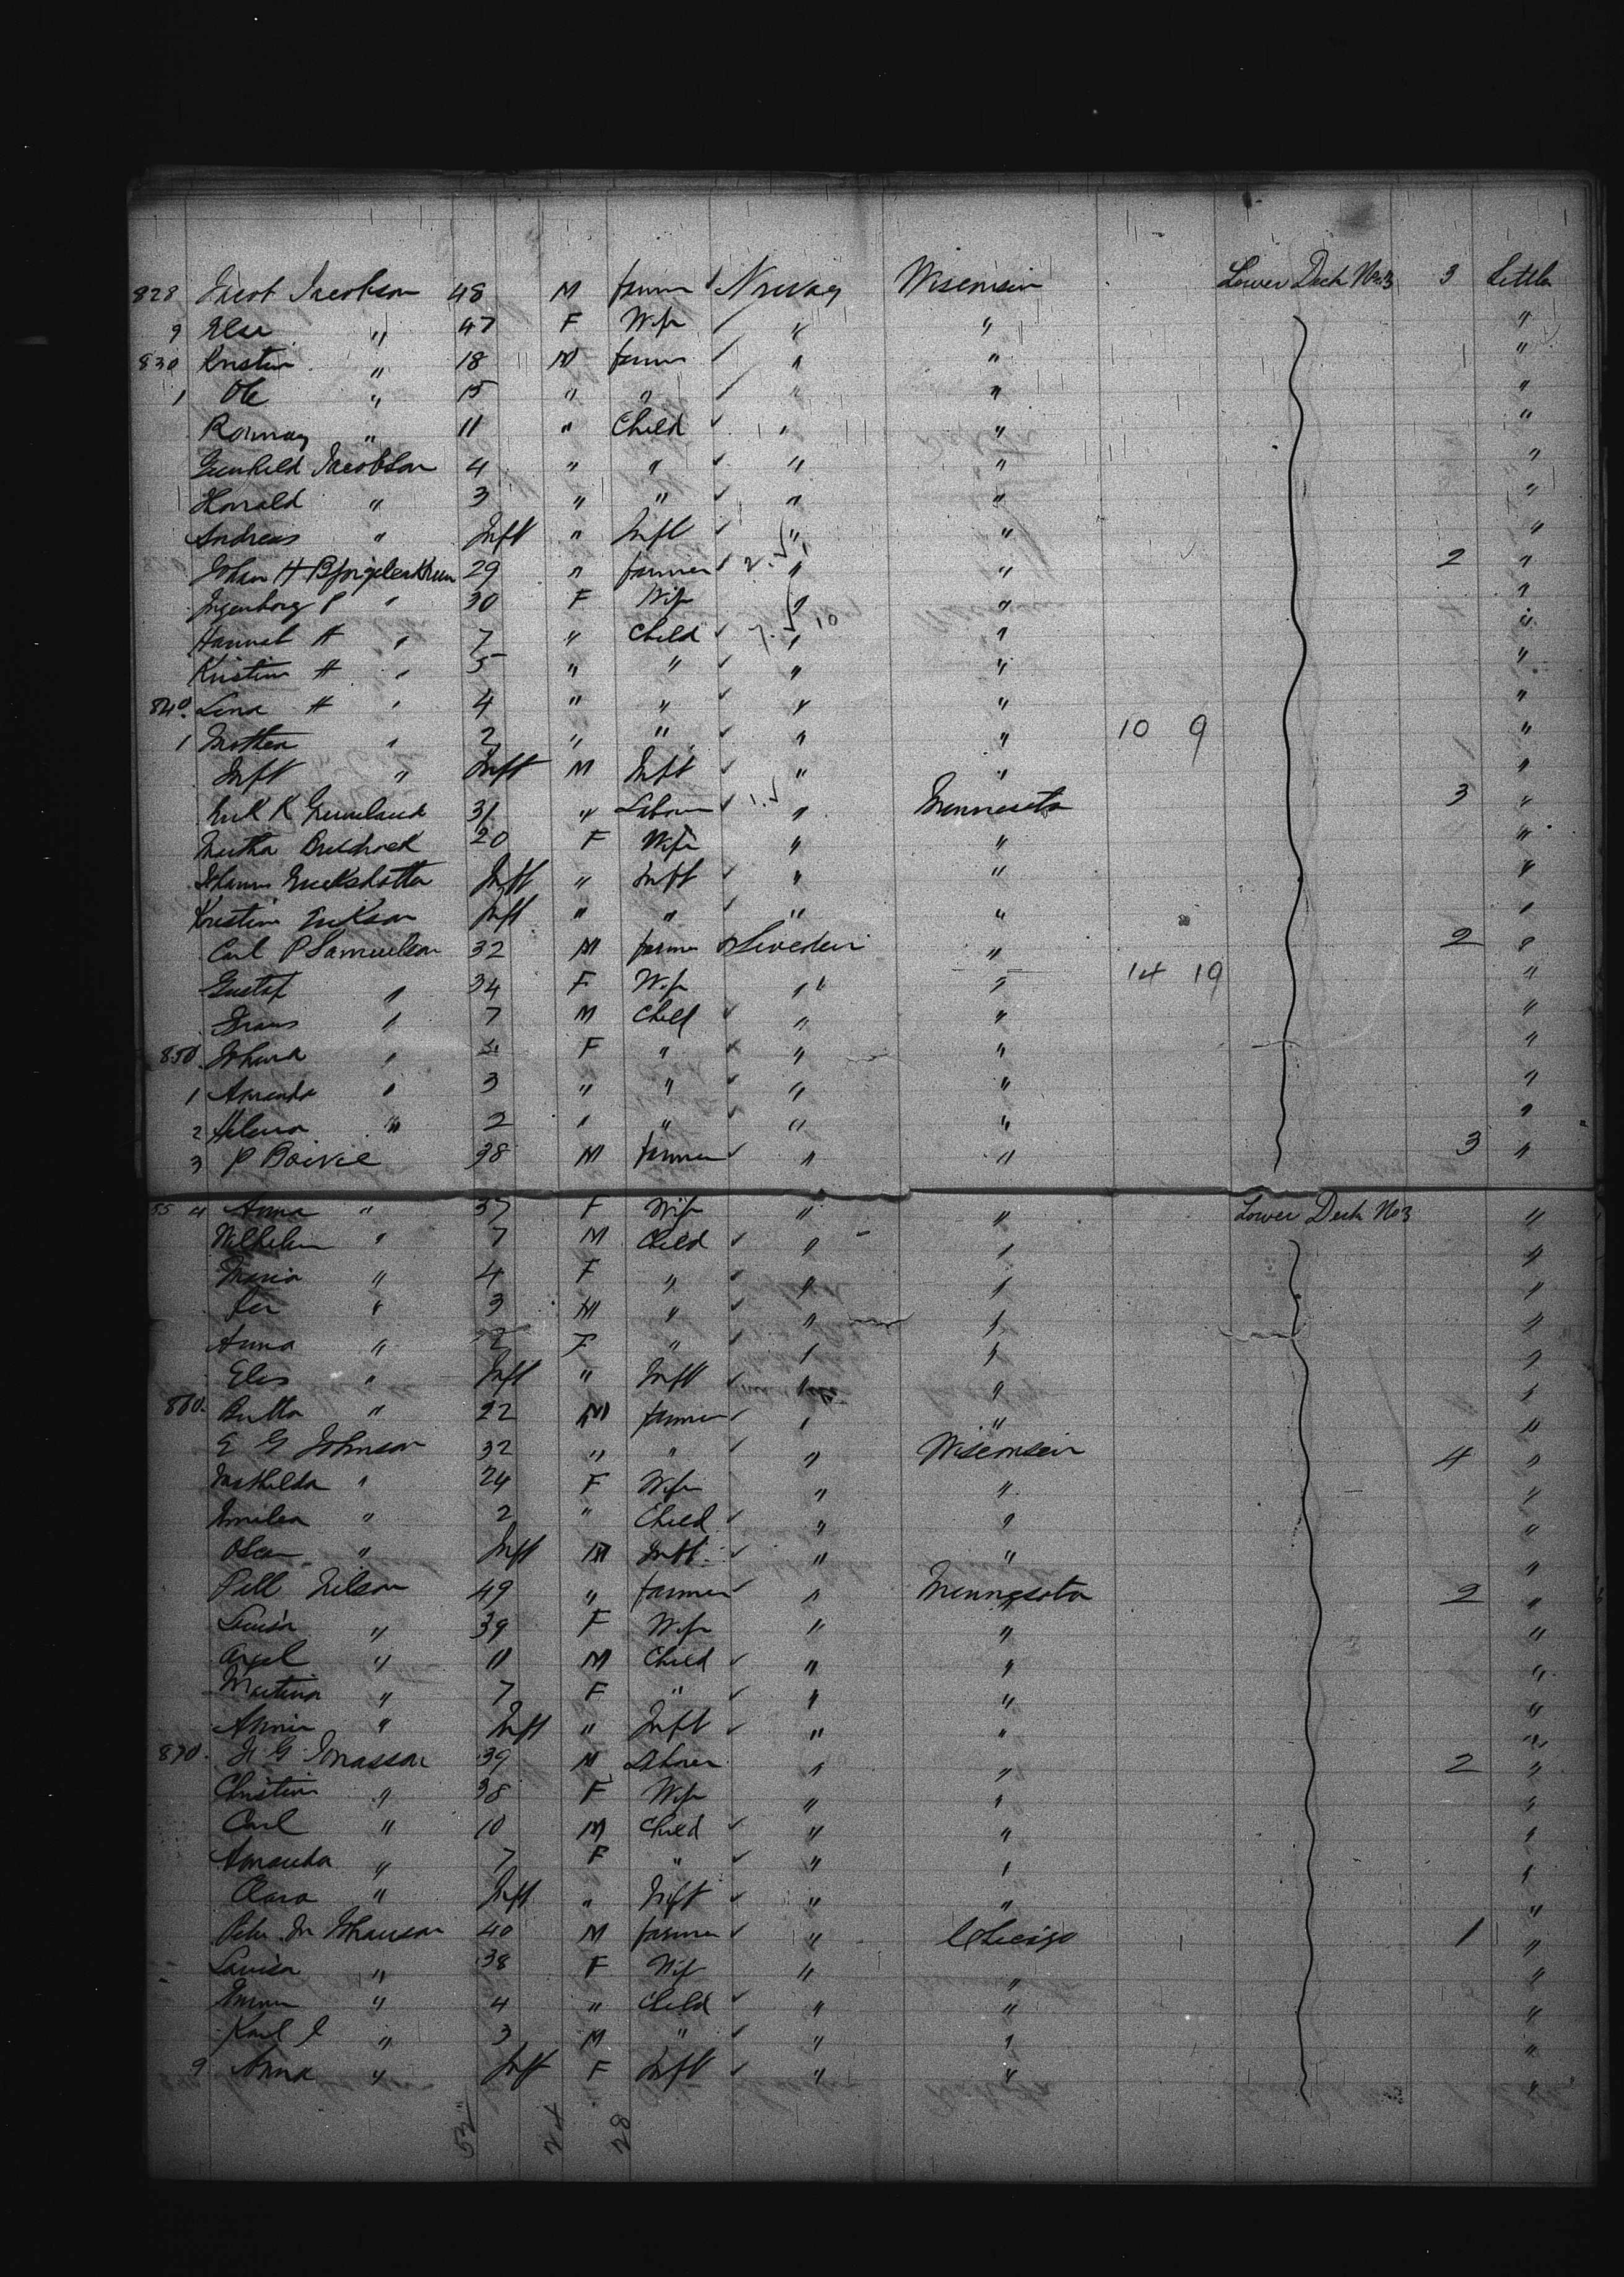 828 Jacob Jacobson 48 M farmer Norway Wisconsin Lower Deck No 3 3 Settler
9 Elsa " 47 F Wife " " "
830 Kristin " 18 M farmer " " "
1 Ole " 15 " " " " "
" 11 " Child " " "
Gunhild Jacobson 4 " " " " "
Harald " 3 " " " " "
Andreas " Inft " Inft " " "
Johan H 29 " farmer " " 2 "
Ingenborg P " 30 F Wife " " "
Hannah H " 7 " Child " " "
Kristine H " 5 " " " " "
840 Lina H " 4 " " " " "
1 " 2 " " " " 10 9 "
Inft " Inft M Inft " " "
31 " Labour " Minnesota 3 "
20 F Wife " " "
Inft " Inft " " "
Kristine Erikson Inft " " " " "
Carl P Samuelson 32 M farmer Sweden " 2 "
Gustaf " 34 F Wife " " 14 19 "
Frans " 7 M Child " " "
850 " 4 F " " " "
1 Amanda " 3 " " " " "
2 Helena " 2 " " " " "
3 P 38 M farmer " " 3 "
55 4 Anna " 37 F Wife " " Lower Deck No 3 "
Wilhelm " 7 M Child " " "
Maria " 4 F " " " "
Per " 3 M " " " "
Anna " 2 F " " " "
Elis " Inft " Inft " " "
860 " 22 M farmer " " "
E G Johnson 32 " " " Wisconsin 4 "
Mathilda " 24 F Wife " " "
Emilia " 2 " Child " " "
Oscar " Inft M Inft " " "
Pell Nilson 49 " farmer " Minnesota 2 "
Louisa " 39 F Wife " " "
Axel " 11 M Child " " "
Martina " 7 F " " " "
" Inft " Inft " " "
870 G Jonasson 39 M Labourer " " 2 "
Christine " 38 F Wife " " "
Carl " 10 M Child " " "
Amanda " 7 F " " " "
Clara " Inft " Inft " " "
Peter M Johanson 40 M farmer " Chicago 1 "
Lovisa " 38 F Wife " " "
" 4 " Child " " "
Karl " 3 M " " " "
9 Anna " Inft F Inft " " "
52 24 28